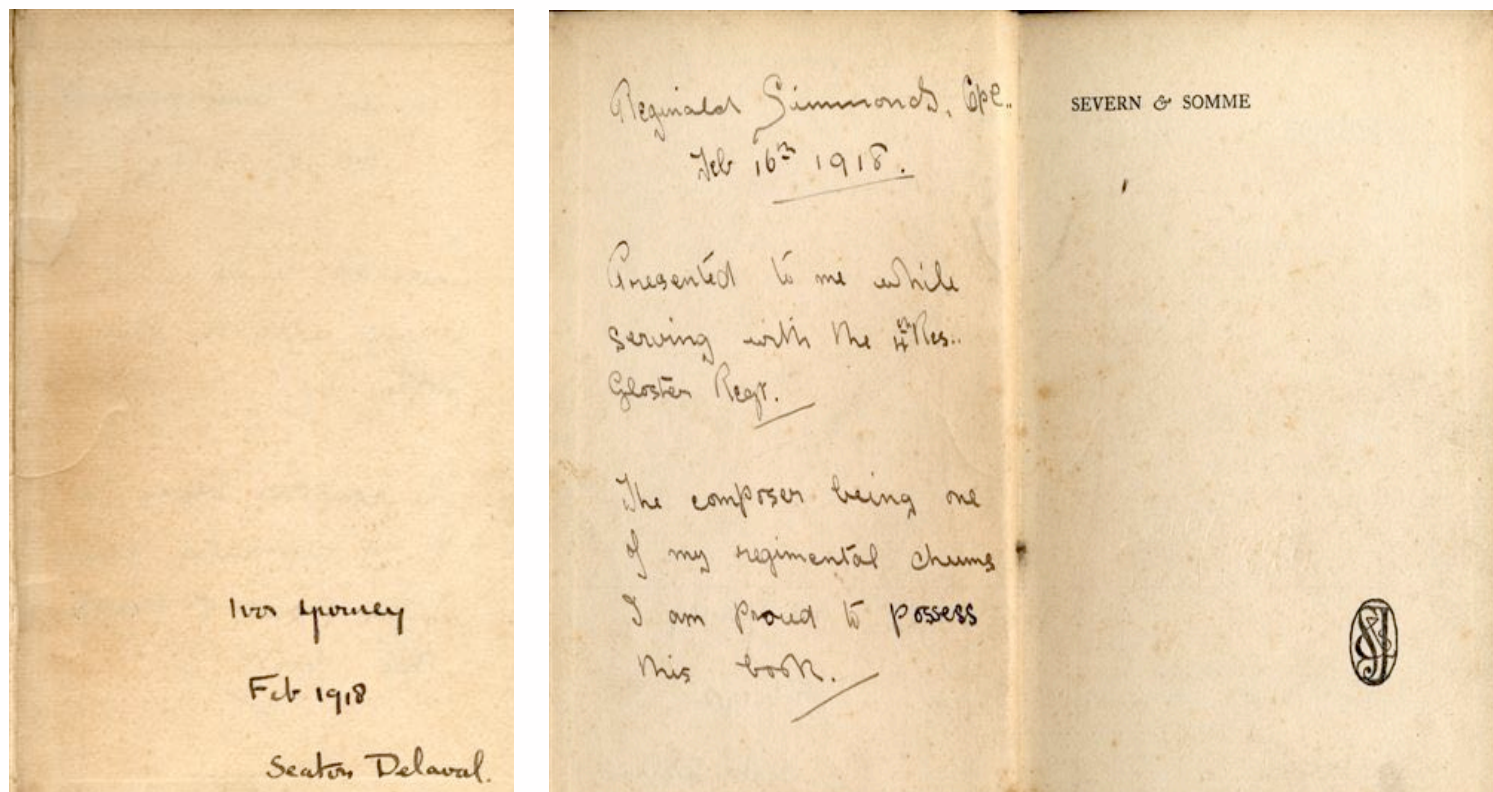 Ivor Gurney
Feb 1918
Seaton Delaval.
Reginald Simmonds, Cpl..
Feb 16th 1918.
Presented to me while
serving with the 4th Res..
Gloster Regt.
The composer being one
of my regimental chums
I am proud to possess
this book.
SEVERN & SOMME
SJ